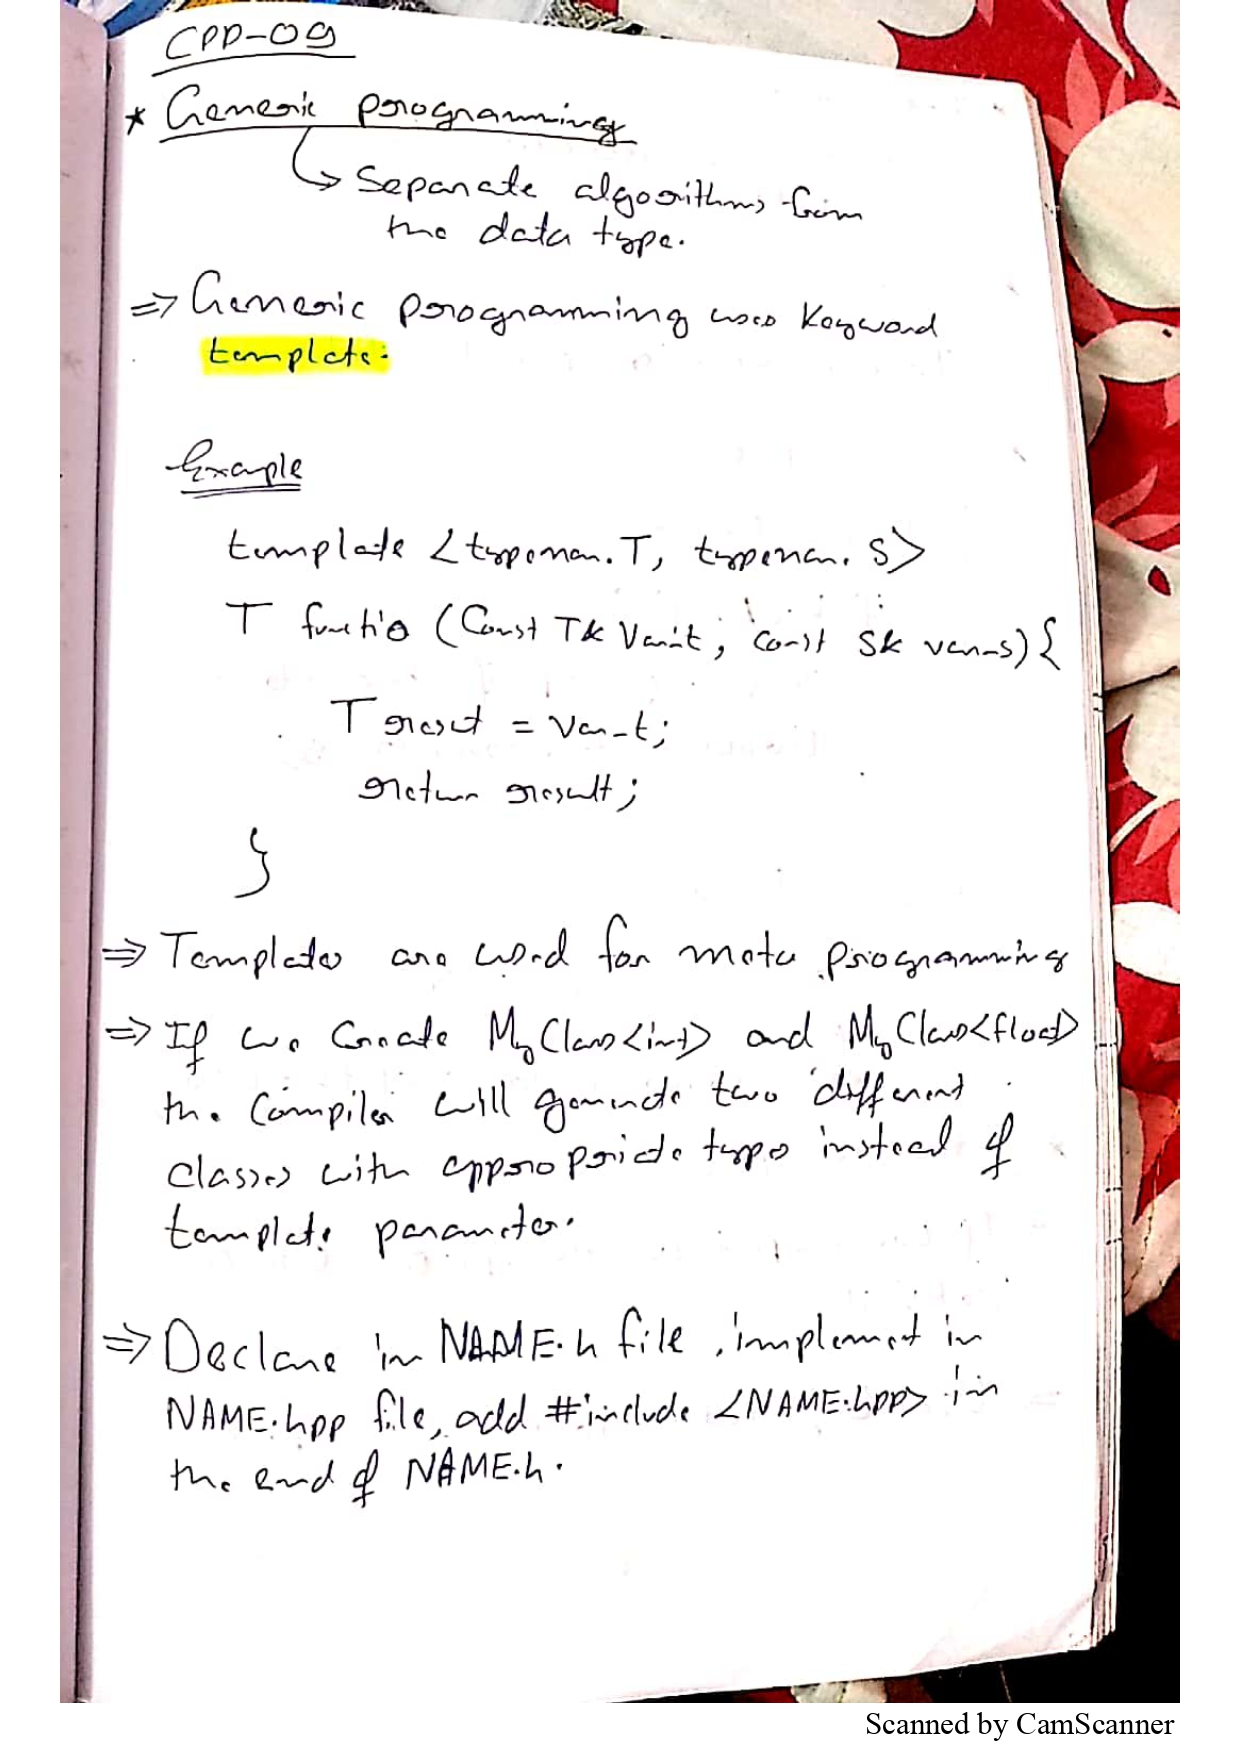 CPP-09
* Generic programming
↳ Separate algorithms from
the data type.
⇒ Generic programming uses keyword
template.
Example
template <typename T, typename S>
T function (const T& var_t, const S& var_s) {
T result = var_t;
return result;
}
⇒ Templates are used for meta programming
⇒ If we create MyClass<int> and MyClass<float>
the compiler will generate two different
classes with appropriate types instead of
template parameter.
⇒ Declare in NAME.h file, implement in
NAME.hpp file, add #include <NAME.hpp> in
the end of NAME.h.
Scanned by CamScanner